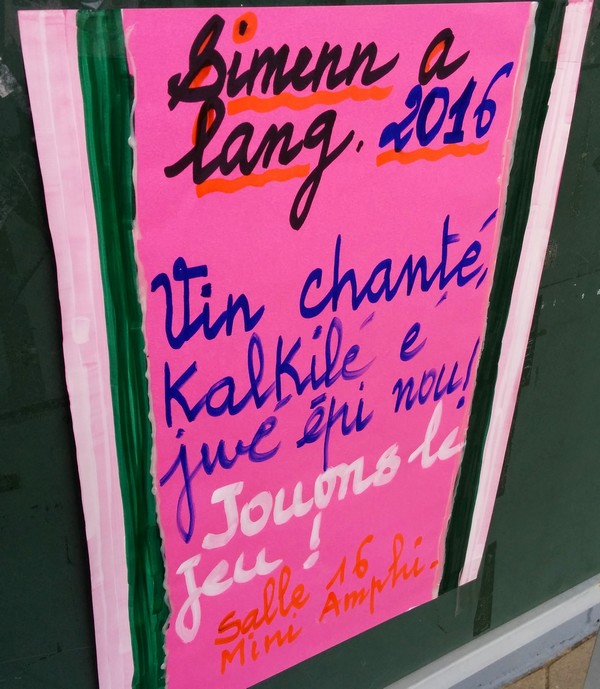 Simenn a
lang. 2016
Vin chanté,
Kalkilé é
jwé épi nou!
Jouons le
jeu !
Salle 16
Mini Amphi.